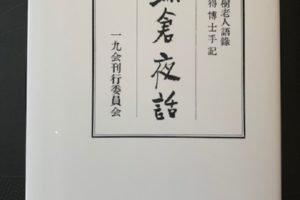 樹老人語錄
得博士手記
倉夜話
一九会刊行委員会